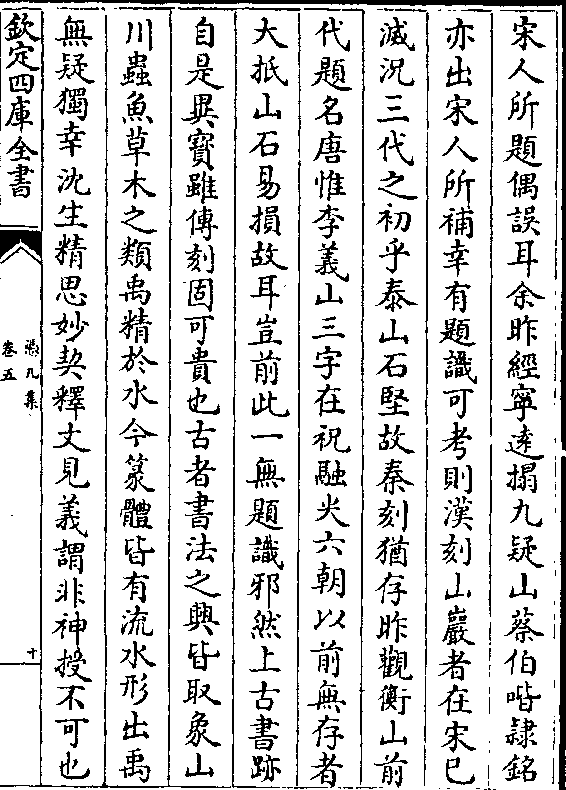 宋人所題偶誤耳余昨經寧逺搨九疑山蔡伯喈隷銘
亦出宋人所補幸有題識可考則漢刻山巖者在宋已
滅況三代之初乎泰山石堅故秦刻猶存昨觀衡山前
代題名唐惟李義山三字在祝融尖六朝以前無存者
大抵山石易損故耳豈前此一無題識邪然上古書跡
自是異寳雖傳刻固可貴也古者書法之興皆取象山
川蟲魚草木之類禹精於水今篆體皆有流水形出禹
無疑獨幸沈生精思妙契釋文見義謂非神授不可也
欽定四庫全書
憑几集
卷五
十